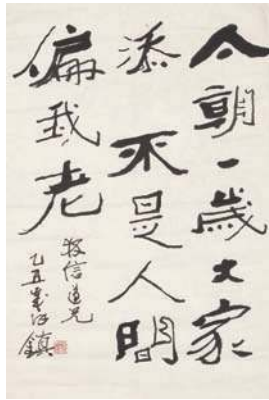 今朝一歲大家
添不是人間
偏我老
信道兄
乙丑
鎮